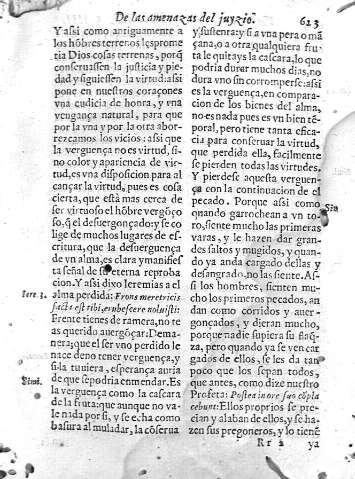 De las amenazas del juyzio. 623
Y assi como antiguamente a
los hōbres terrenos lespromе
tia Dios cosas terrenas, porq̄
conseruassen la justicia y pie-
dad y siguiessen la virtud: assi
pone en nuestros coraçones
vna cudicia de honra, y vna
vengança natural, para que
por la vna y por la otra abor-
rezcamos los vicios: assi que
la verguença no es virtud, si-
no color y apariencia de vir-
tud, es vna disposicion para al-
cançar la virtud, pues es cosa
cierta, que està mas cerca de
ser virtuoso el hōbre vergōço
so, q̄ el desuergonçado: y se co
lige de muchos lugares de es-
critura, que la desuerguença
de vn alma, es clara y manifies
ta señal de su eterna reproba
cion. Y assi dixo Ieremias a el
Iere 3. alma perdida: Frons meretricis
facta est tibi, erubescere noluisti:
Frente tienes de ramera, no te
as querido auergōçar. De ma-
nera, que el ser vno perdido le
nace de no tener verguença, y
si la tuuiera, esperança auria
Simi. de que se podria enmendar. Es
la verguença como la cascara
de la fruta: que aunque no va-
le nada por si, y se echa como
basura al muladar, la cōserua
y sustenta: y si a vna pera o mā
çana, o a otra qualquiera fru-
ta le quitays la cascara, lo que
podria durar muchos dias, no
dura vno sin corromperse: assi
es la verguença, en compara-
cion de los bienes del alma,
no es nada pues es vn bien tē-
poral, pero tiene tanta efica-
cia para conseruar la virtud,
que perdida ella, facilmente
se pierden todas las virtudes.
Y pierdese aquesta verguen-
ça con la continuacion de el
pecado. Porque assi como
quando garrochean a vn to-
ro, siente mucho las primeras
varas, y le hazen dar gran-
des saltos y mugidos, y quan-
do ya anda cargado dellas y
desangrado, no las siente. As-
si los hombres, sienten mu-
cho los primeros pecados, an
dan como corridos y auer-
gonçados, y dieran mucho,
porque nadie supiera su flaq̄-
za, pero quando ya se ven car
gados de ellos, se les da tan
poco que los sepan todos,
que antes, como dize nuestro
Profeta: Postea in ore suo cōpla
cebunt: Ellos proprios se pre-
cian y alaban de ellos, y se ha-
zen sus pregoneros, y lo tienē
Rr 2 ya